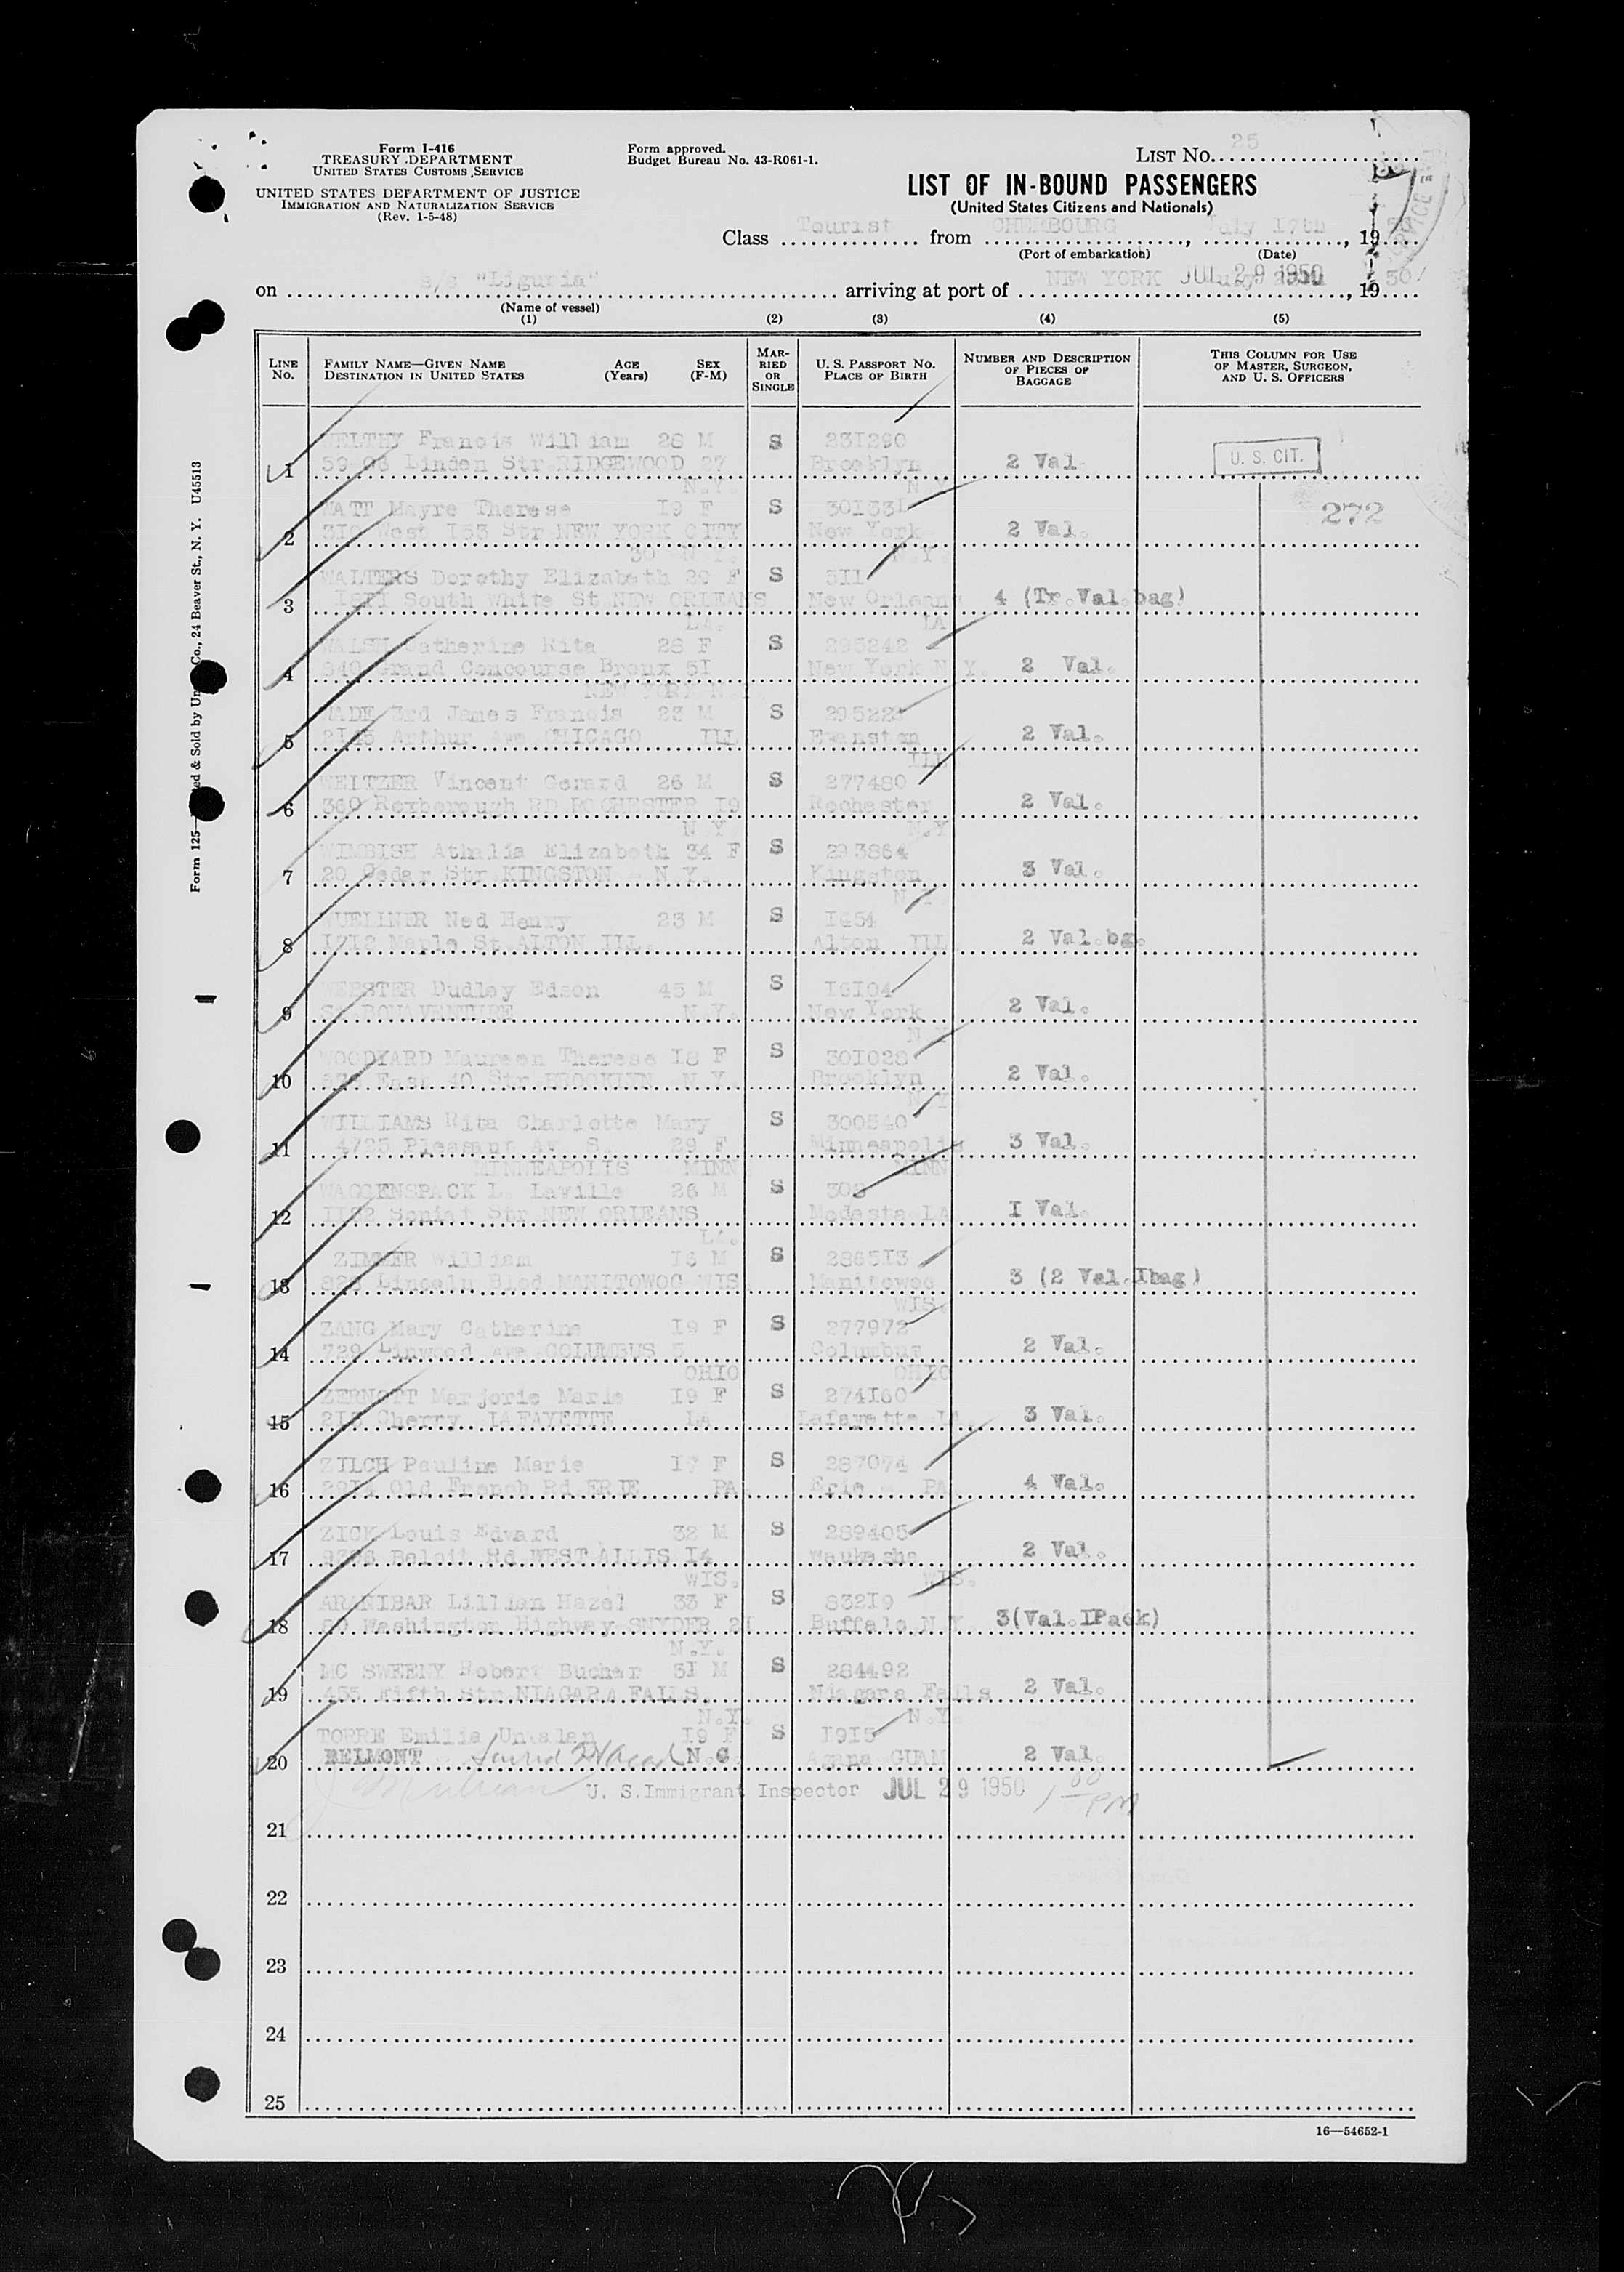 25
Form I-416
TREASURY DEPARTMENT
UNITED STATES CUSTOMS SERVICE
UNITED STATES DEPARTMENT OF JUSTICE
IMMIGRATION AND NATURALIZATION SERVICE
(Rev. 1-5-48)
Form approved.
Budget Bureau No. 43-R061-1.
LIST NO.
LIST OF IN-BOUND PASSENGERS
(United States Citizens and Nationals)
Class Tourist from CHERBOURG, July 17th, 1950
(Port of embarkation) (Date)
on s/s "Liguria" arriving at port of NEW YORK JUL 29 1950, 1950
(Name of vessel)
(1) (2) (3) (4) (5)
LINE NO.
FAMILY NAME—GIVEN NAME
DESTINATION IN UNITED STATES
AGE (Years)
SEX (F-M)
MARRIED OR SINGLE
U. S. PASSPORT NO.
PLACE OF BIRTH
NUMBER AND DESCRIPTION OF PIECES OF BAGGAGE
THIS COLUMN FOR USE OF MASTER, SURGEON, AND U. S. OFFICERS
WELTHY Francis William 28 M S 231290
1 Linden Str RIDGEWOOD 27 Brooklyn 2 Val U. S. CIT.
N.Y. N.Y.
WATT Mayre Therese 19 F S 272
2 West 153 Str NEW YORK CITY New York 2 Val.
30 N.Y. N.Y.
WALTERS Dorothy Elizabeth 29 F S 511
3 South White St NEW ORLEANS New Orleans 4 (Tr.Val.bag)
LA. LA
WALSH Catherine Rita 28 F S 295242
4 Grand Concourse Bronx 51 New York N.Y. 2 Val.
NEW YORK N.Y.
WADE 3rd James Francis 23 M S
5 2145 Arthur Ave CHICAGO ILL Evanston 2 Val.
ILL
WEITZER Vincent Gerard 26 M S 277480
6 360 Roxborough RD ROCHESTER 19 Rochester 2 Val.
N.Y. N.Y
WIMBISH Athalia Elizabeth 34 F S 293864
7 20 Cedar Str KINGSTON N.Y. Kingston 3 Val.
N.Y.
WUELLNER Ned Henry 23 M S
8 1712 Maple St ALTON ILL. Alton ILL 2 Val.bg.
WEBSTER Dudley Edson 45 M S
9 ST BONAVENTURE N.Y. New York 2 Val.
N Y
WOODYARD Maureen Therese 18 F S 301028
10 East 40 Str BROOKLYN N.Y. Brooklyn 2 Val.
N Y
WILLIAMS Rita Charlotte Mary S 300540
11 4725 Pleasant Av S. 29 F Minneapolis 3 Val.
MINNEAPOLIS MINN. MINN
WAGGENSPACK L. Laville 26 M S
12 Soniat Str NEW ORLEANS Modesta LA. I Val.
LA.
ZIMMER William 16 M S 286513
13 Lincoln Blvd MANITOWOC WIS. Manitowoc 3 (2 Val.Ibag)
WIS.
ZANG Mary Catherine 19 F S 277972
14 729 Linwood Ave COLUMBUS 5 Columbus 2 Val.
OHIO OHIO
ZERNOTT Marjorie Marie 19 F S 274160
15 Cherry LAFAYETTE LA Lafayette LA. 3 Val.
ZILCH Pauline Marie 17 F S 287074
16 Old French Rd ERIE PA. Erie PA 4 Val.
ZICK Louis Edward 32 M S 289405
17 Beloit Rd WEST ALLIS 14 Waukesha 2 Val.
WIS. WIS.
ARANIBAR Lillian Hazel 33 F S 83219
18 Washington Highway SNYDER 21 Buffalo N.Y. 3(Val.IPack)
N.Y.
MC SWEENY Robert Bucher 31 M S 284492
19 455 Fifth Str NIAGARA FALLS Niagara Falls 2 Val.
N.Y. N.Y.
TORRE Emilia Untalan 19 F S 1915
20 BELMONT Sacred Ht Acad N.C. Agana GUAM 2 Val.
U. S. Immigrant Inspector JUL 29 1950 1 00 PM
21
22
23
24
25
16—54652-1
Form 125— Co., 24 Beaver St., N. Y. U45513